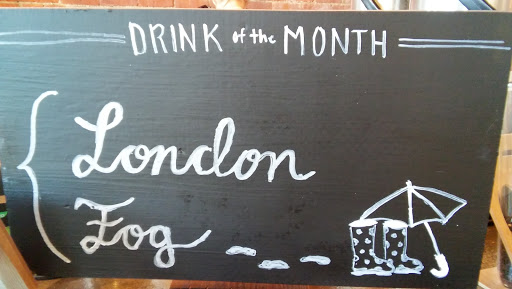 DRINK of the MONTH
London
Fog